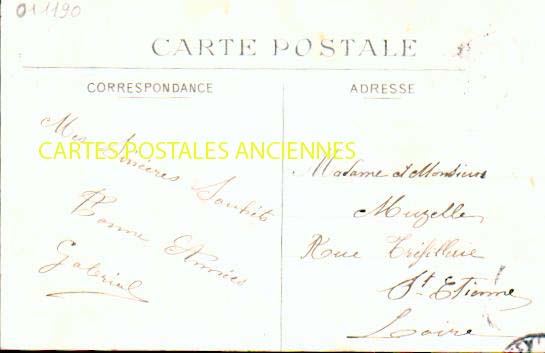 011190
CARTE POSTALE
CORRESPONDANCE
ADRESSE
Mes Sincères Souhaits
CARTES POSTALES ANCIENNES
Bonne Année
Gabriel
Madame et Monsieur
Muzelle
Rue Tréfilerie
St Etienne
Loire